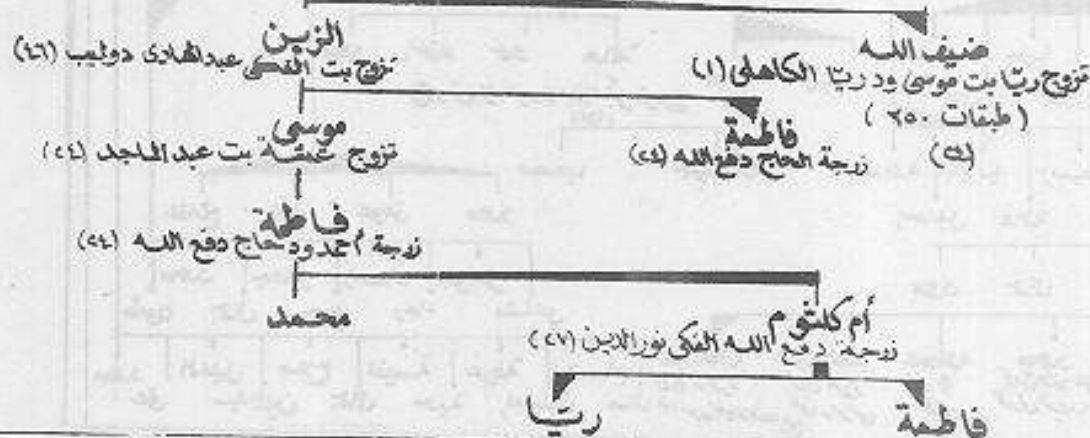 ضيف الله
تزوج ريّا بت موسى ود ريّا الكاهلى (١)
( طبقات ٢٥٠ )
(٢٤)
الزين
تزوج بت الفكى عبد الهادى دوليب (٤٦)
فاطمة
زوجة الحاج دفع الله (٢٤)
موسى
تزوج بت عبد الماجد (٢٤)
فاطمة
زوجة أحمد ود حاج دفع الله (٢٤)
أم كلثوم
زوجة دفع الله الفكى نور الدين (٢٧)
محمد
فاطمة
ريّا